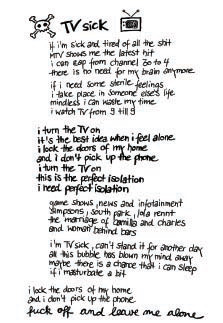 TV sick
if i'm sick and tired of all the shit
MTV shows me the latest hit
i can zap from channel 30 to 4
there is no need for my brain anymore
if i need some sterile feelings
i take place in someone else's life
mindless i can waste my time
i watch TV from 9 till 9
i turn the TV on
it's the best idea when i feel alone
i lock the doors of my home
and i don't pick up the phone
i turn the TV on
this is the perfect isolation
i need perfect isolation
game shows, news and infotainment
simpsons, south park, lola rennt
the marriage of camilla and charles
and woman behind bars
i'm TV sick, can't stand it for another day
all this bubble has blown my mind away
maybe there is a chance that i can sleep
if i masturbate a bit
i lock the doors of my home
and i don't pick up the phone
fuck off and leave me alone